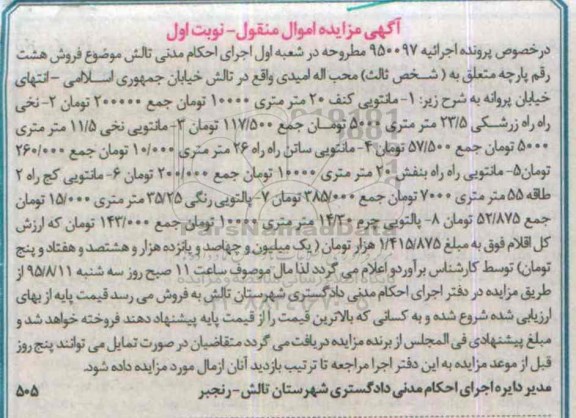 آگهی مزایده اموال منقول- نوبت اول
درخصوص پرونده اجرائیه ۹۵۰۰۹۷ مطروحه در شعبه اول اجرای احکام مدنی تالش موضوع فروش هشت
رقم پارچه متعلق به ( شخص ثالث) محب اله امیدی واقع در تالش خیابان جمهوری اسلامی -انتهای
خیابان پروانه به شرح زیر: ۱- مانتویی کنف ۲۰ متر متری ۱۰۰۰۰ تومان جمع ۲۰۰۰۰۰ تومان ۲- نخی
راه راه زرشکی ۲۳/۵ متر متری ۵۰۰۰ تومان جمع ۱۱۷/۵۰۰ تومان ۳- مانتویی نخی ۱۱/۵ متر متری
۵۰۰۰ تومان جمع ۵۷/۵۰۰ تومان ۴- مانتویی ساتن راه راه ۲۶ متر متری ۱۰/۰۰۰ تومان جمع ۲۶۰/۰۰۰
تومان۵- مانتویی راه راه بنفش ۲۰ متر متری ۱۰۰۰۰ تومان جمع ۲۰۰/۰۰۰ تومان ۶- مانتویی کج راه ۲
طاقه ۵۵ متر متری ۷۰۰۰ تومان جمع ۳۸۵/۰۰۰ تومان ۷- پالتویی رنگی ۳۵/۲۵ متر متری ۱۵/۰۰۰ تومان
جمع ۵۲/۸۷۵ تومان ۸- پالتویی چرم ۱۴/۳۰ متر متری ۱۰۰۰۰ تومان جمع ۱۴۳/۰۰۰ تومان که ارزش
کل اقلام فوق به مبلغ ۱/۴۱۵/۸۷۵ هزار تومان ( یک میلیون و چهاصد و پانزده هزار و هشتصد و هفتاد و پنج
تومان) توسط کارشناس برآورد و اعلام می گردد لذا مال موصوف ساعت ۱۱ صبح روز سه شنبه ۹۵/۸/۱۱ از
طریق مزایده در دفتر اجرای احکام مدنی دادگستری شهرستان تالش به فروش می رسد قیمت پایه از بهای
ارزیابی شده شروع شده و به کسانی که بالاترین قیمت را از قیمت پایه پیشنهاد دهند فروخته خواهد شد و
مبلغ پیشنهادی فی المجلس از برنده مزایده دریافت می گردد متقاضیان در صورت تمایل می توانند پنج روز
قبل از موعد مزایده به این دفتر اجرا مراجعه تا ترتیب بازدید آنان ازمال مورد مزایده داده شود.
مدیر دایره اجرای احکام مدنی دادگستری شهرستان تالش- رنجبر
۵۰۵